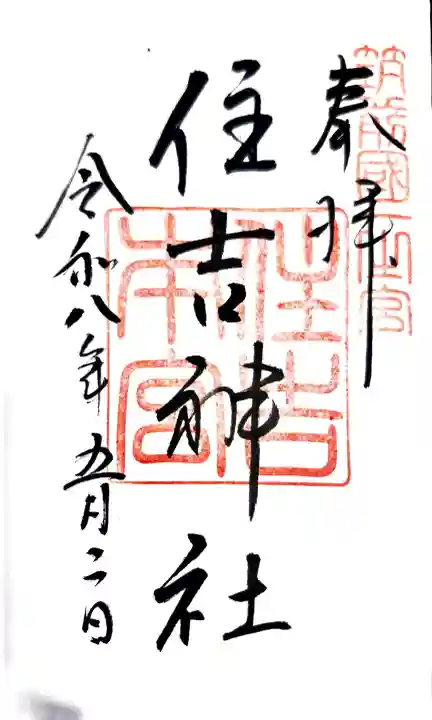 奉拝
筑前國一之宮
住吉神社
住吉本宮
令和八年五月二日